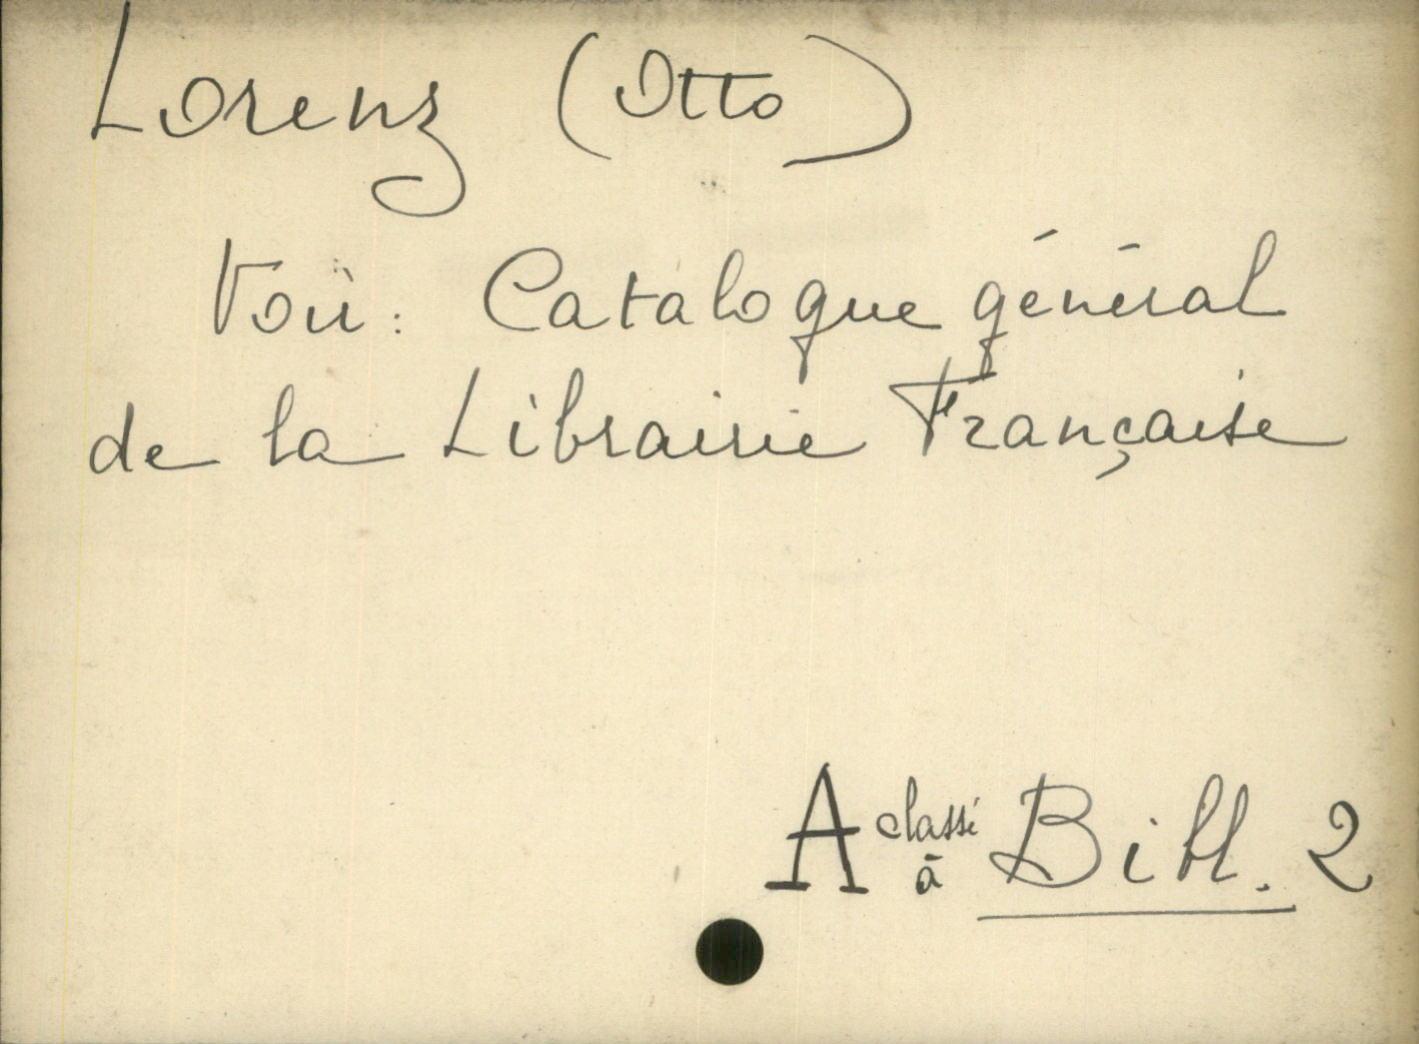 Lorenz (Otto)
Voir : Catalogue général
de la Librairie Française
A classé à Bibl. 2